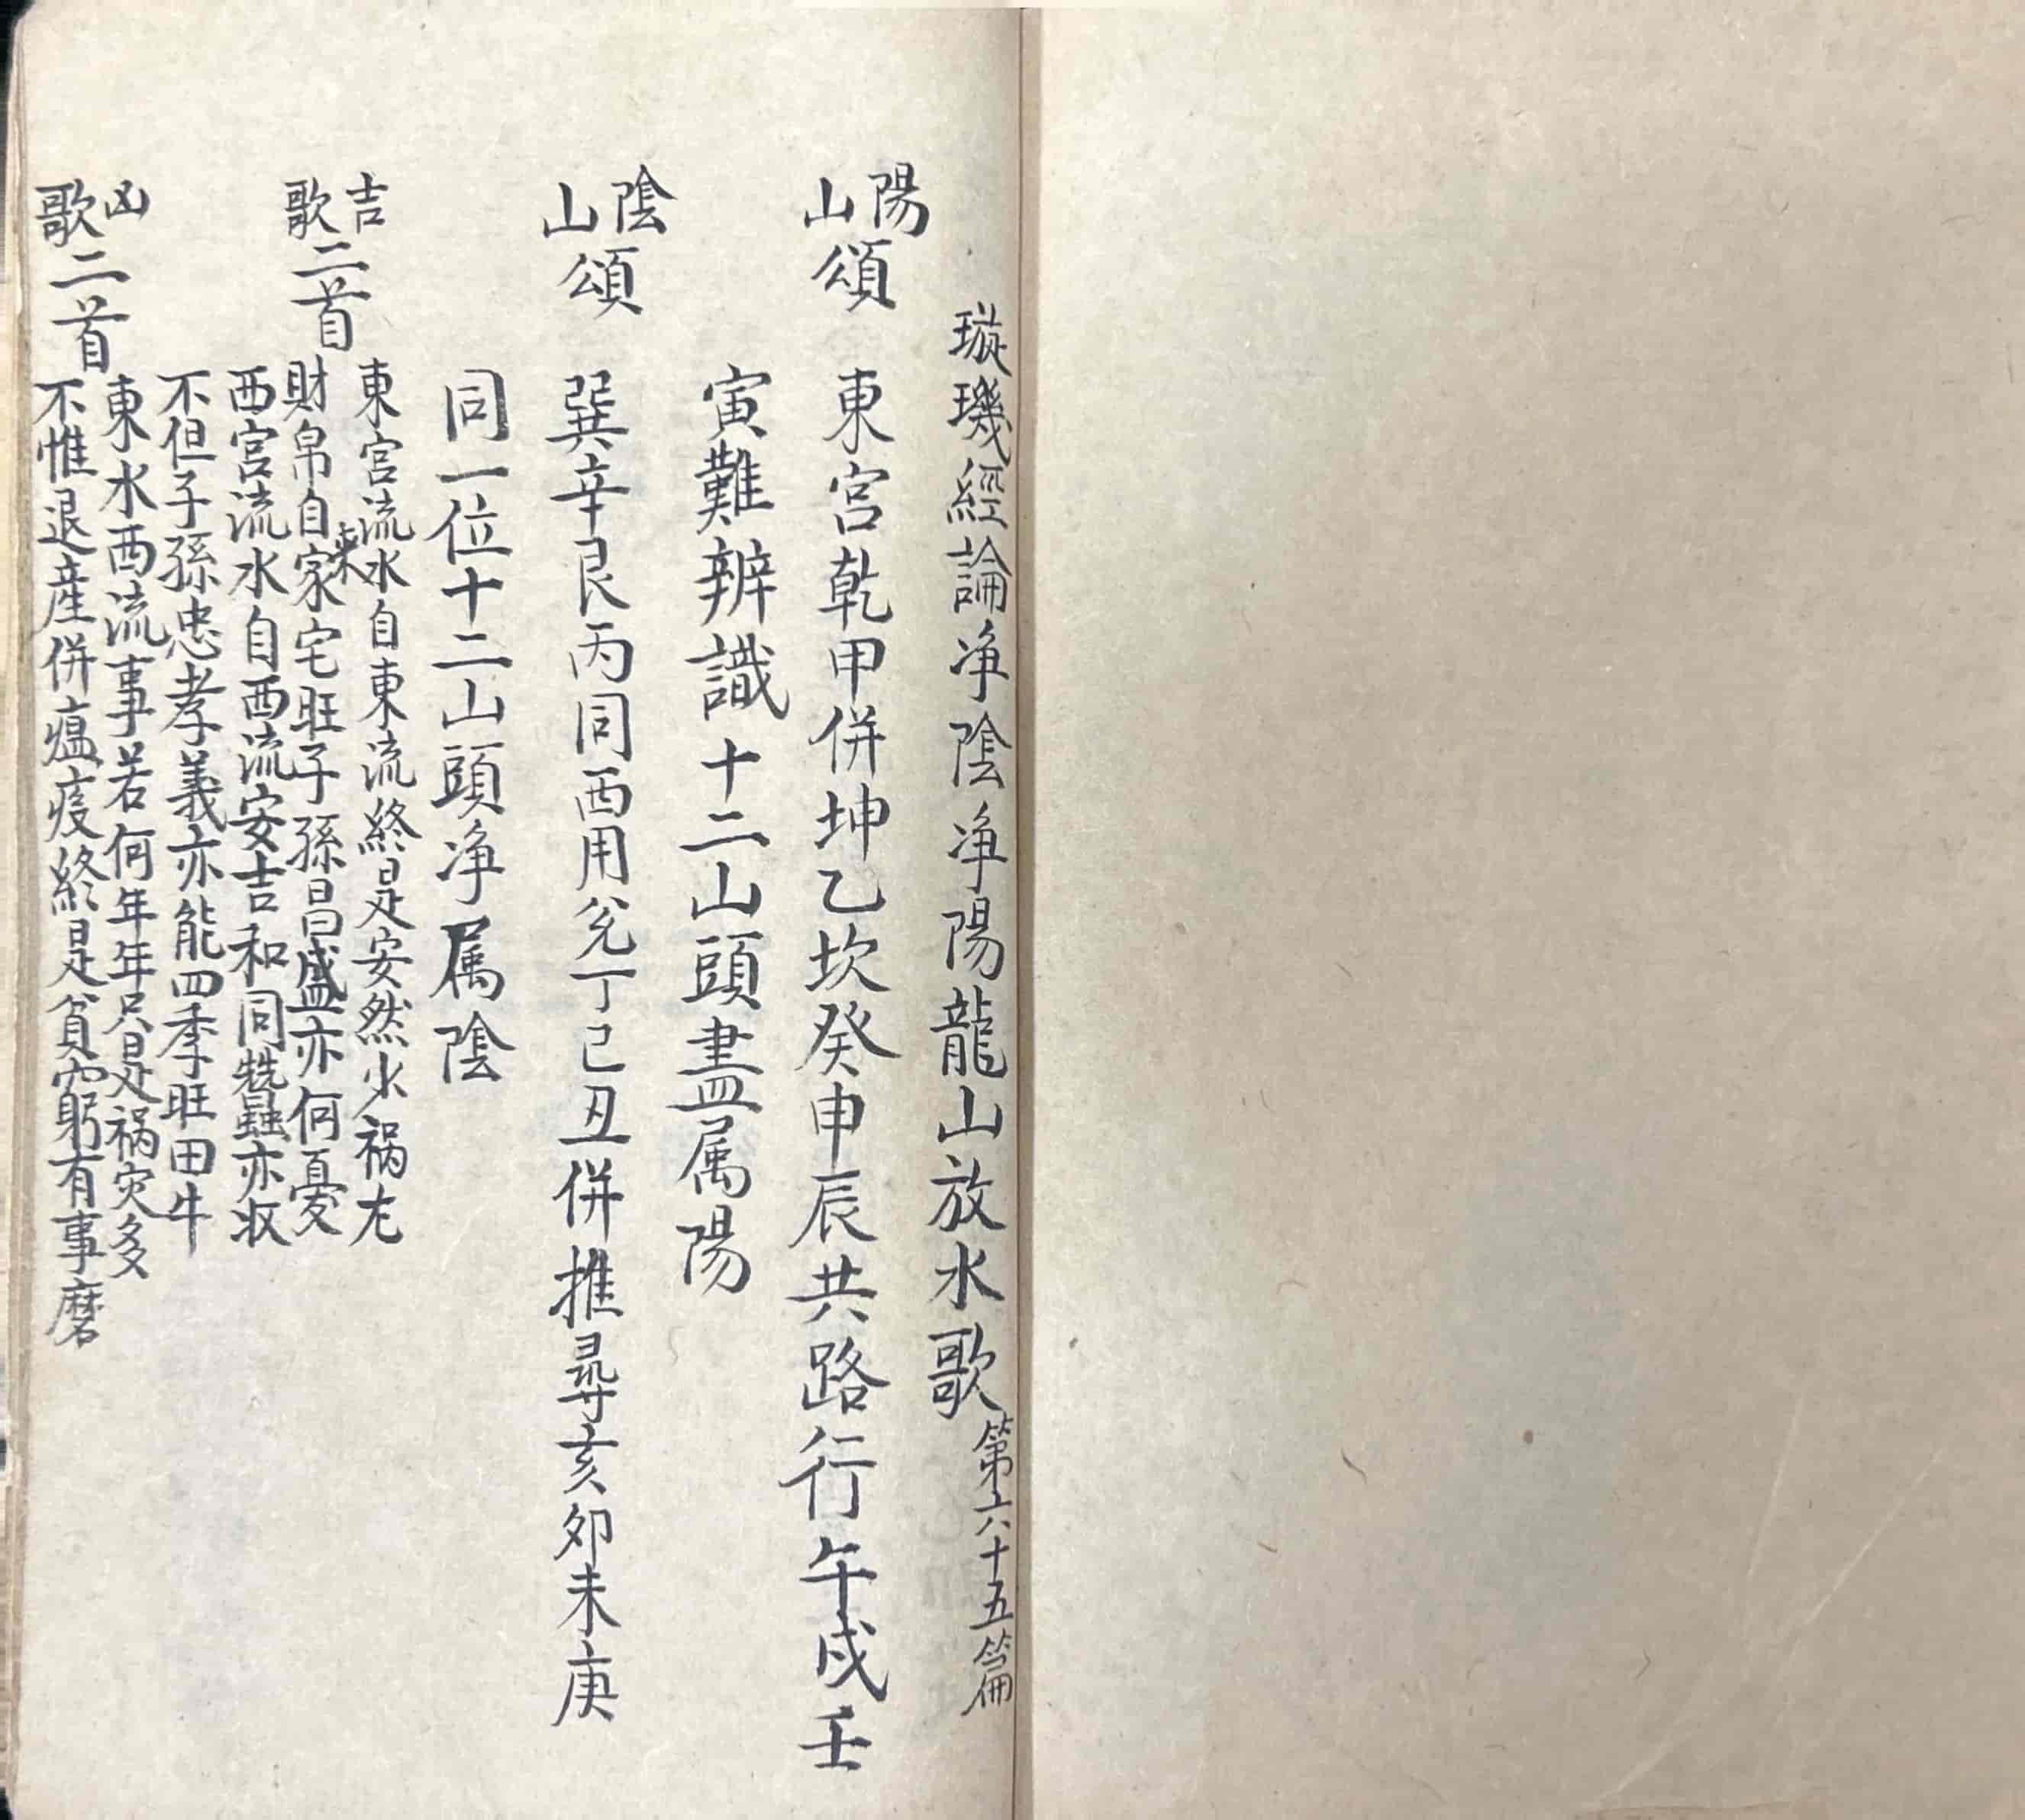 璇璣經論净陰净陽龍山放水歌第六十五篇
陽山頌 東宮乾甲併坤乙坎癸申辰共路行午戌壬
寅難辨識十二山頭盡属陽
陰山頌 巽辛艮丙同酉用兌丁己丑併推尋亥卯未庚
同一位十二山頭净属陰
吉歌二首 東宮流水自東流終是安然火祸尤
財帛自來家宅旺子孫昌盛亦何憂
西宮流水自西流安吉和同蠶亦收
不但子孫忠孝義亦能四季旺田牛
凶歌二首 東水西流事若何年年只是祸灾多
不惟退産併瘟疫終是貧窮有事磨